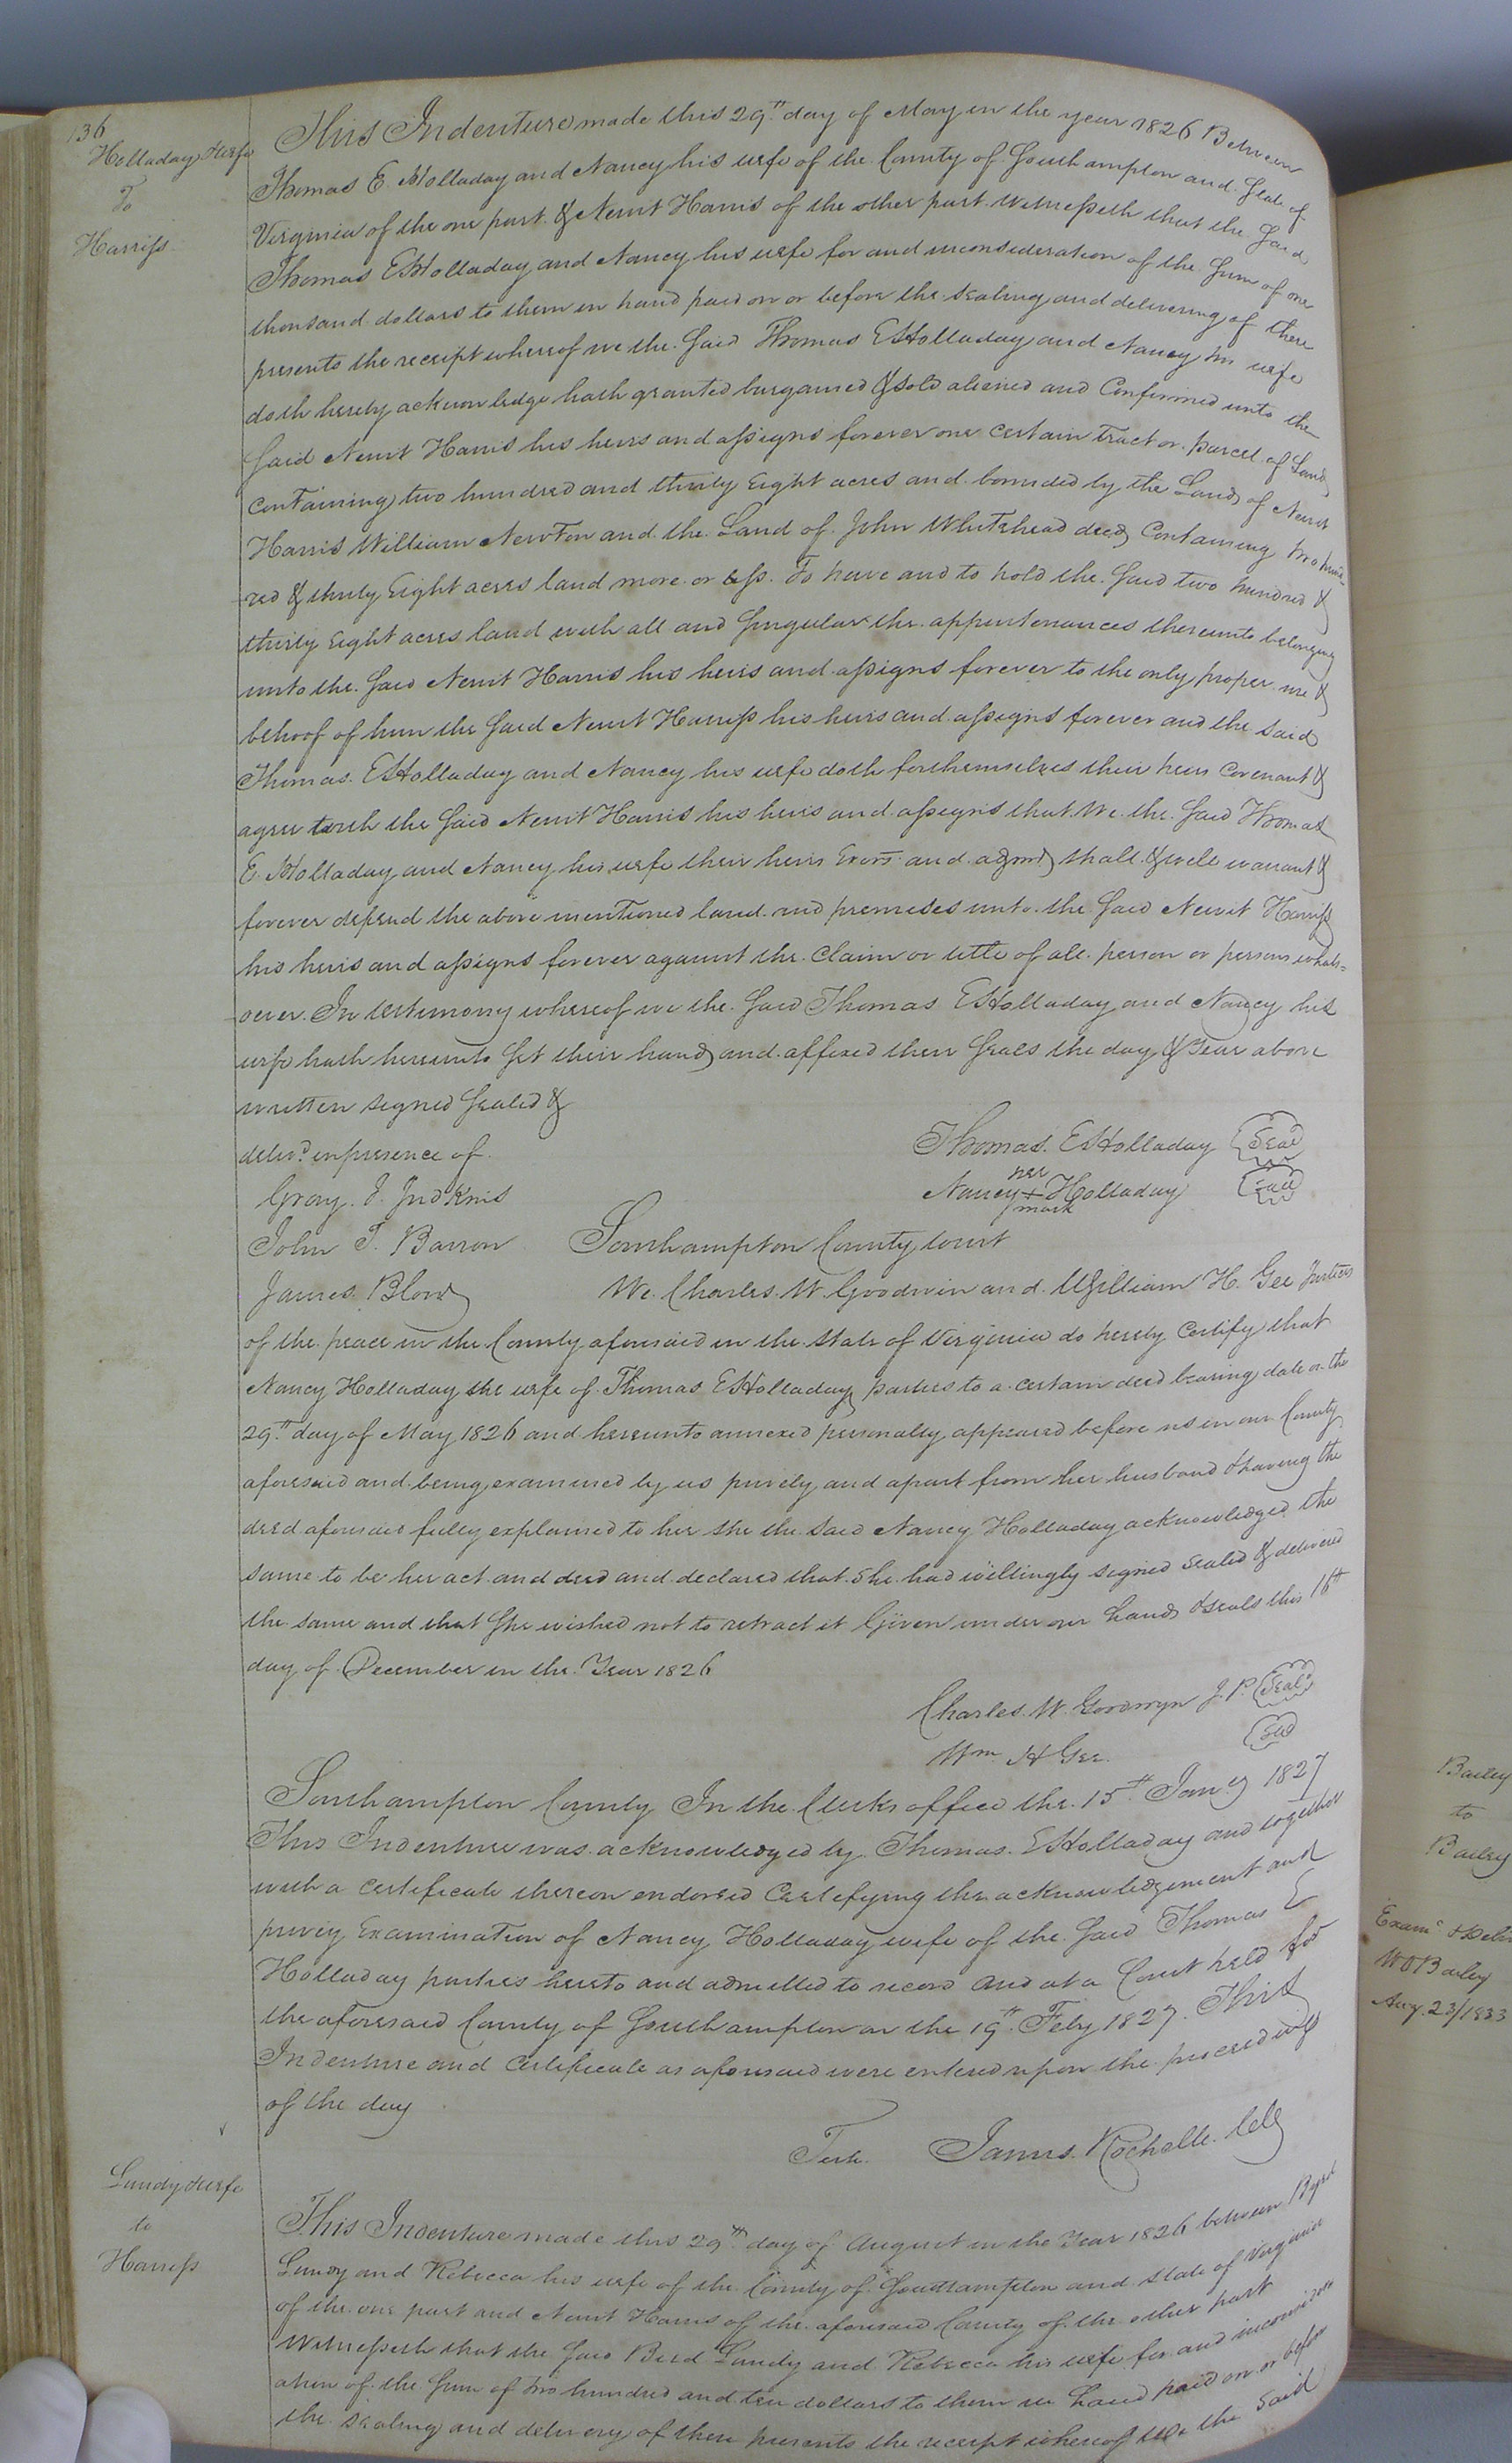 136
Holladay & wife
To
Harriss
This Indenture made this 29th day of May in the year 1826 Between
Thomas E. Holladay and Nancy his wife of the County of Southampton and State of
Virginia of the one part & Newit Harris of the other part Witnesseth that the Said
Thomas E Holladay and Nancy his wife for and in consideration of the Sum of one
thousand dollars to them in hand paid on or before the sealing and delivering of these
presents the receipt whereof we the Said Thomas E Holladay and Nancy his wife
doth hereby acknowledge hath granted bargained & sold aliened and Confirmed unto the
Said Newit Harris his heirs and assigns forever one certain Tract or parcel of Land
containing two hundred and thirty Eight acres and bounded by the Land of Newit
Harris William Newton and the Land of John Whitehead decd Containing two hund-
red & thirty Eight acres land more or less. To have and to hold the Said two hundred &
thirty Eight acres land with all and Singular the appurtenances thereunto belonging
unto the Said Newit Harris his heirs and assigns forever to the only proper use &
behoof of him the Said Newit Harriss his heirs and assigns forever and the said
Thomas E Holladay and Nancy his wife doth for themselves their heirs Covenant &
agree with the Said Newit Harris his heirs and assigns that We the Said Thomas
E. Holladay and Nancy his wife their heirs Exors and admrs shall & will warrant &
forever defend the above mentioned land and premises unto the Said Newit Harriss
his heirs and assigns forever against the Claim or title of all person or persons whats-
oever. In testimony whereof we the Said Thomas E Holladay and Nancy his
wife hath hereunto Set their hand and affixed their Seals the day & Year above
written signed Sealed &
delivd in presence of
Thomas E Holladay Seal
Gray J. Judkins
her
Nancy + Holladay Seal
mark
John T. Barron
Southampton County Court
James Blow
We Charles W Goodwin and William H. Gee Justices
of the peace in the County aforesaid in the State of Virginia do hereby Certify that
Nancy Holladay the wife of Thomas E Holladay parties to a certain deed bearing date on the
29th day of May 1826 and hereunto annexed personally appeared before us in our County
aforesaid and being examined by us privily and apart from her husband & having the
deed aforesaid fully explained to her she the said Nancy Holladay acknowledged the
same to be her act and deed and declared that she had willingly signed Sealed & delivered
the same and that She wished not to retract it Given under our hands & seals this 16th
day of December in the Year 1826
Charles W. Goodwyn J. P. Seal
Wm H Gee Seal
Southampton County In the Clerks office the 15th Jany 1827
This Indenture was acknowledged by Thomas E Holladay and together
with a certificate thereon endorsed Certifying the acknowledgement and
privy Examination of Nancy Holladay wife of the Said Thomas E
Holladay parties hereto and admitted to record and at a Court held for
the aforesaid County of Southampton on the 19th Feby 1827. This
Indenture and Certificate as aforesaid were entered upon the proceedings
of the day
Teste James Rochelle. Clk
Lundy & wife
to
Harriss
This Indenture made this 29th day of August in the Year 1826 between Byrd
Lundy and Rebecca his wife of the County of Southampton and State of Virginia
of the one part and Newit Harris of the aforesaid County of the other part
Witnesseth that the Said Bird Lundy and Rebecca his wife for and in consider
ation of the Sum of two hundred and ten dollars to them in hand paid on or before
the sealing and delivery of these presents the receipt whereof we the said
Bailey
to
Bailey
Examd & Deliv
W O Bailey
Aug. 23/1833